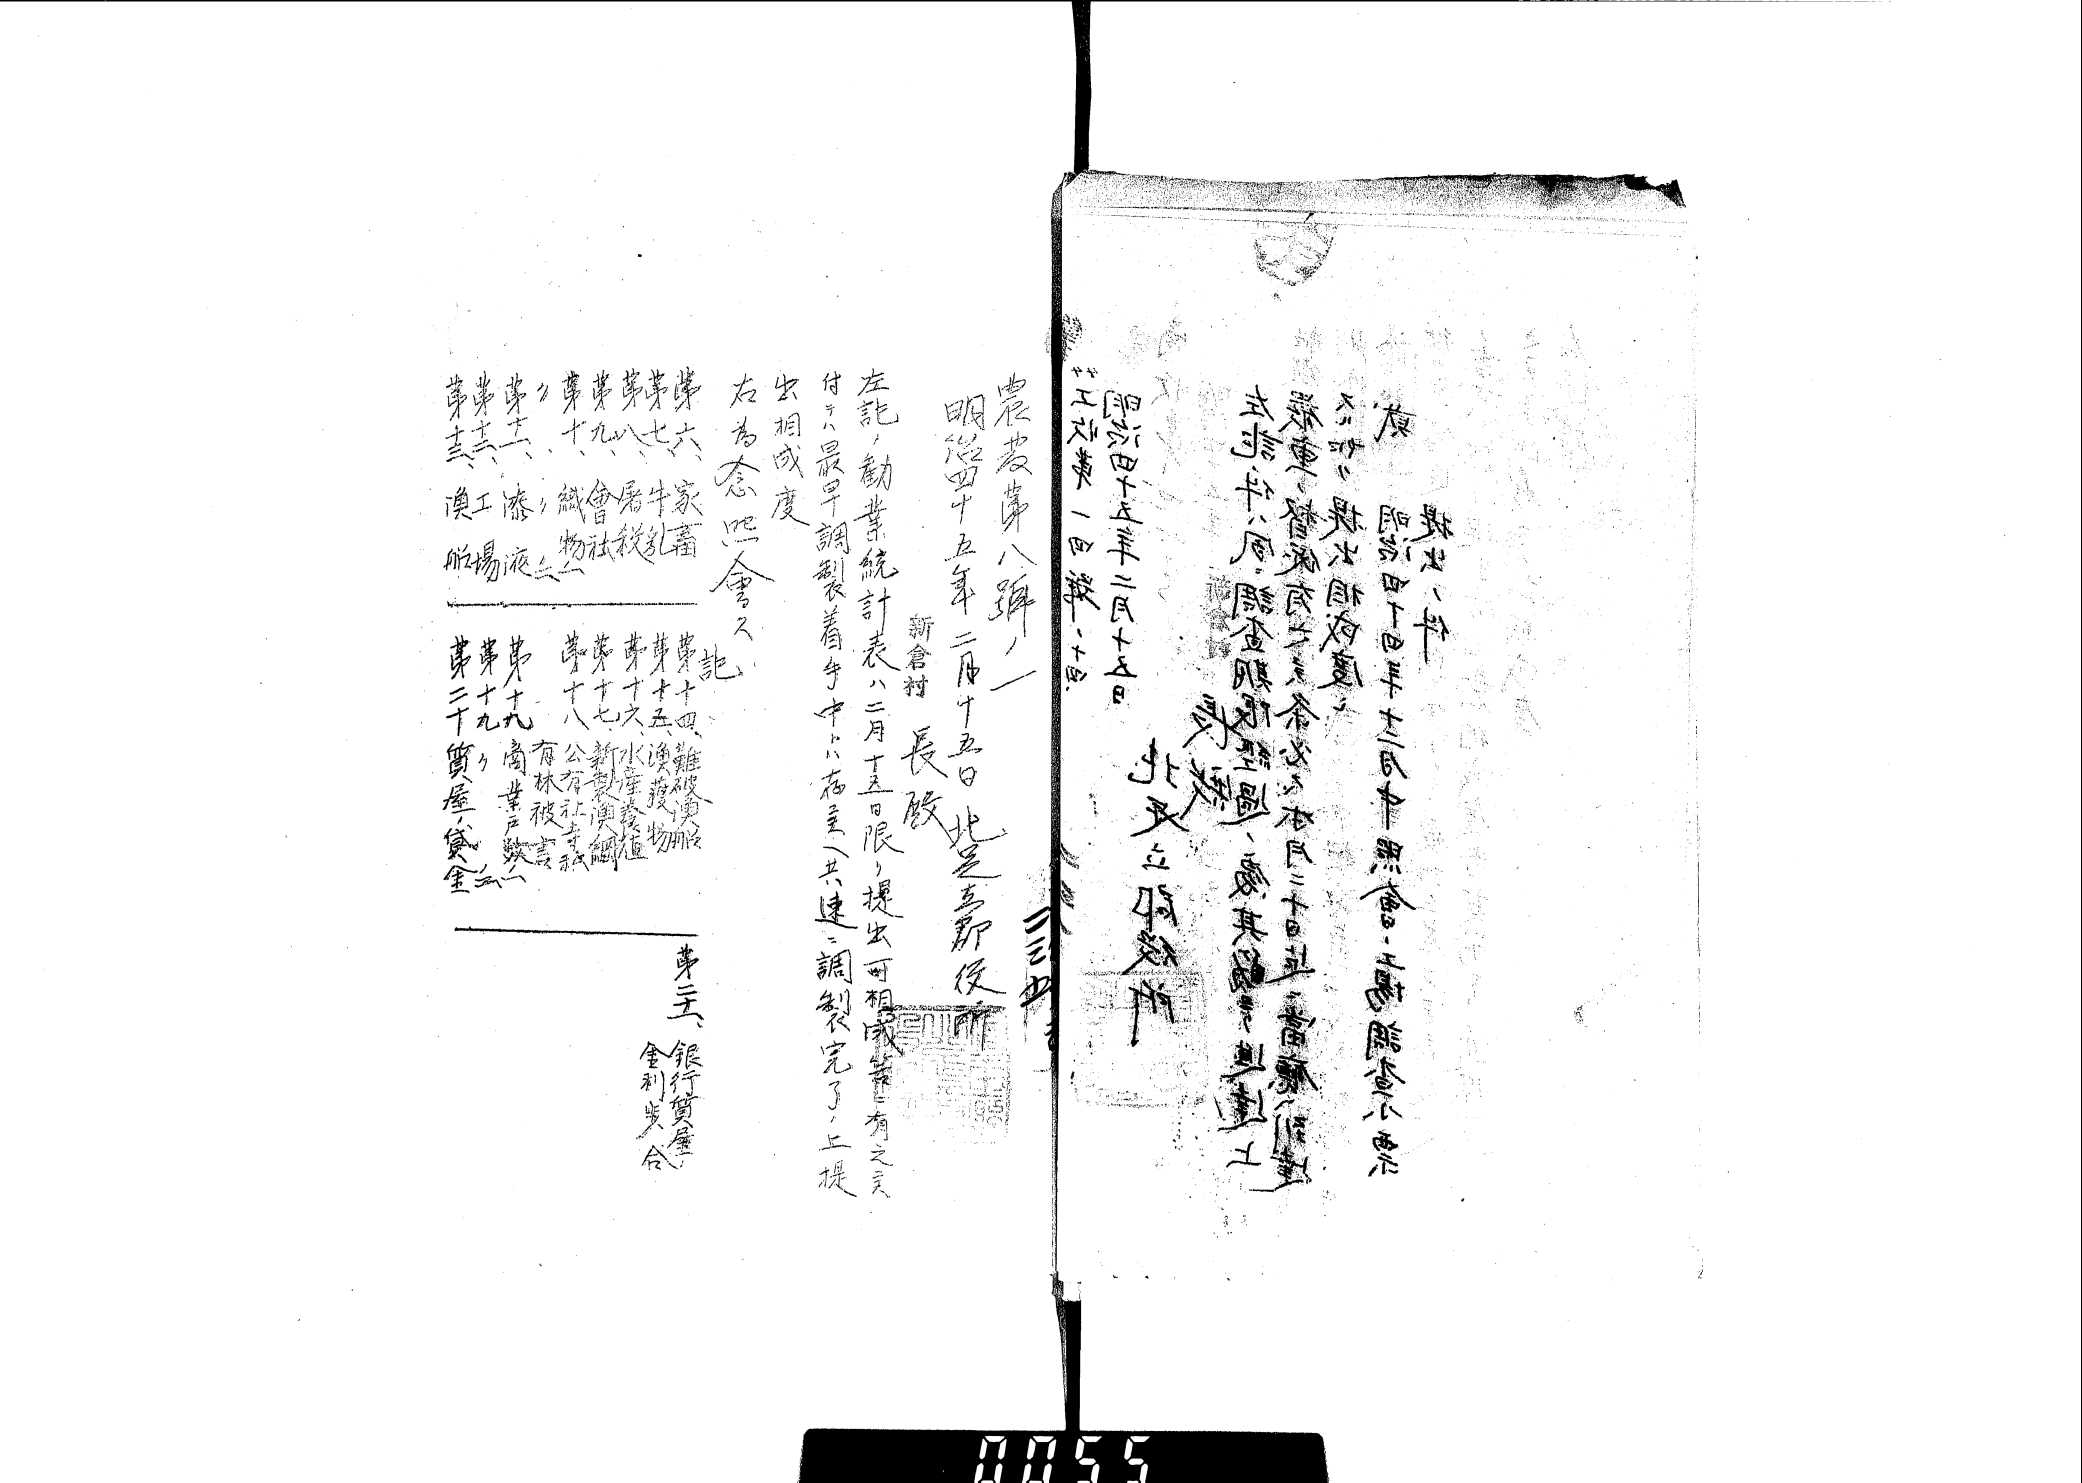 農發第八號ノ一
明治四十五年二月十五日 北足立郡役所
新倉村 長殿
左記ノ勸業統計表ハ二月十五日限リ提出可相成筈ニ有之
付テハ最早調製着手中トハ存 共 速ニ調製完了ノ上提
出相成度
右為念照會ス
記
第六、家畜
第七、牛乳
第八、屠殺
第九、會社
第十、織物ノ一
〃 〃 ノ二
第十一、漆液
第十二、工場
第十三、漁船
第十四、難破漁船
第十五、漁獲物
第十六、水産養殖
第十七、新製漁網
第十八、公有社寺私有林被害
第十九、商業戸數ノ一
第十九 〃 ノ二
第二十 質屋ノ貸金
第二十一、銀行質屋ノ
金利歩合
工收第一四號ノ十四
明治四十五年二月十五日
北足立郡役所
長殿
左記ノ件ハ 調査期限経過 其 進達上
督促 有之 条必ス本月二十日迄ニ當廳ヘ到達
スル 提出相成度
記
明治四十四年十二月中照會ノ工場調査小票
提出ノ件
0055